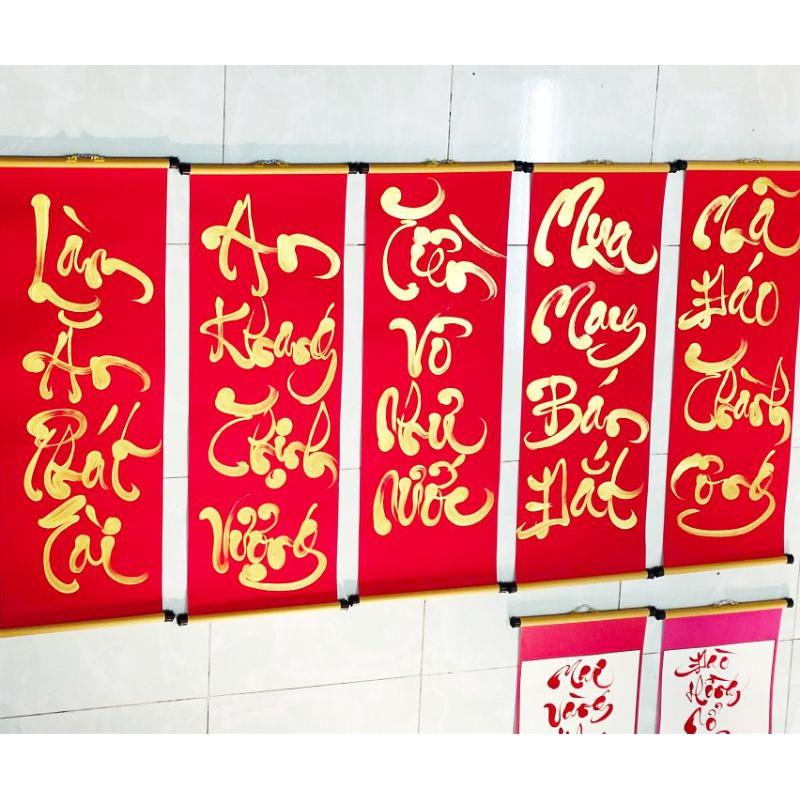 Làm
Ăn
Phát
Tài
An
Khang
Thịnh
Vượng
Tiền
Vô
Như
Nước
Mua
May
Bán
Đắt
Mã
Đáo
Thành
Công
Mai
Vàng
Đào
Hồng
Nở